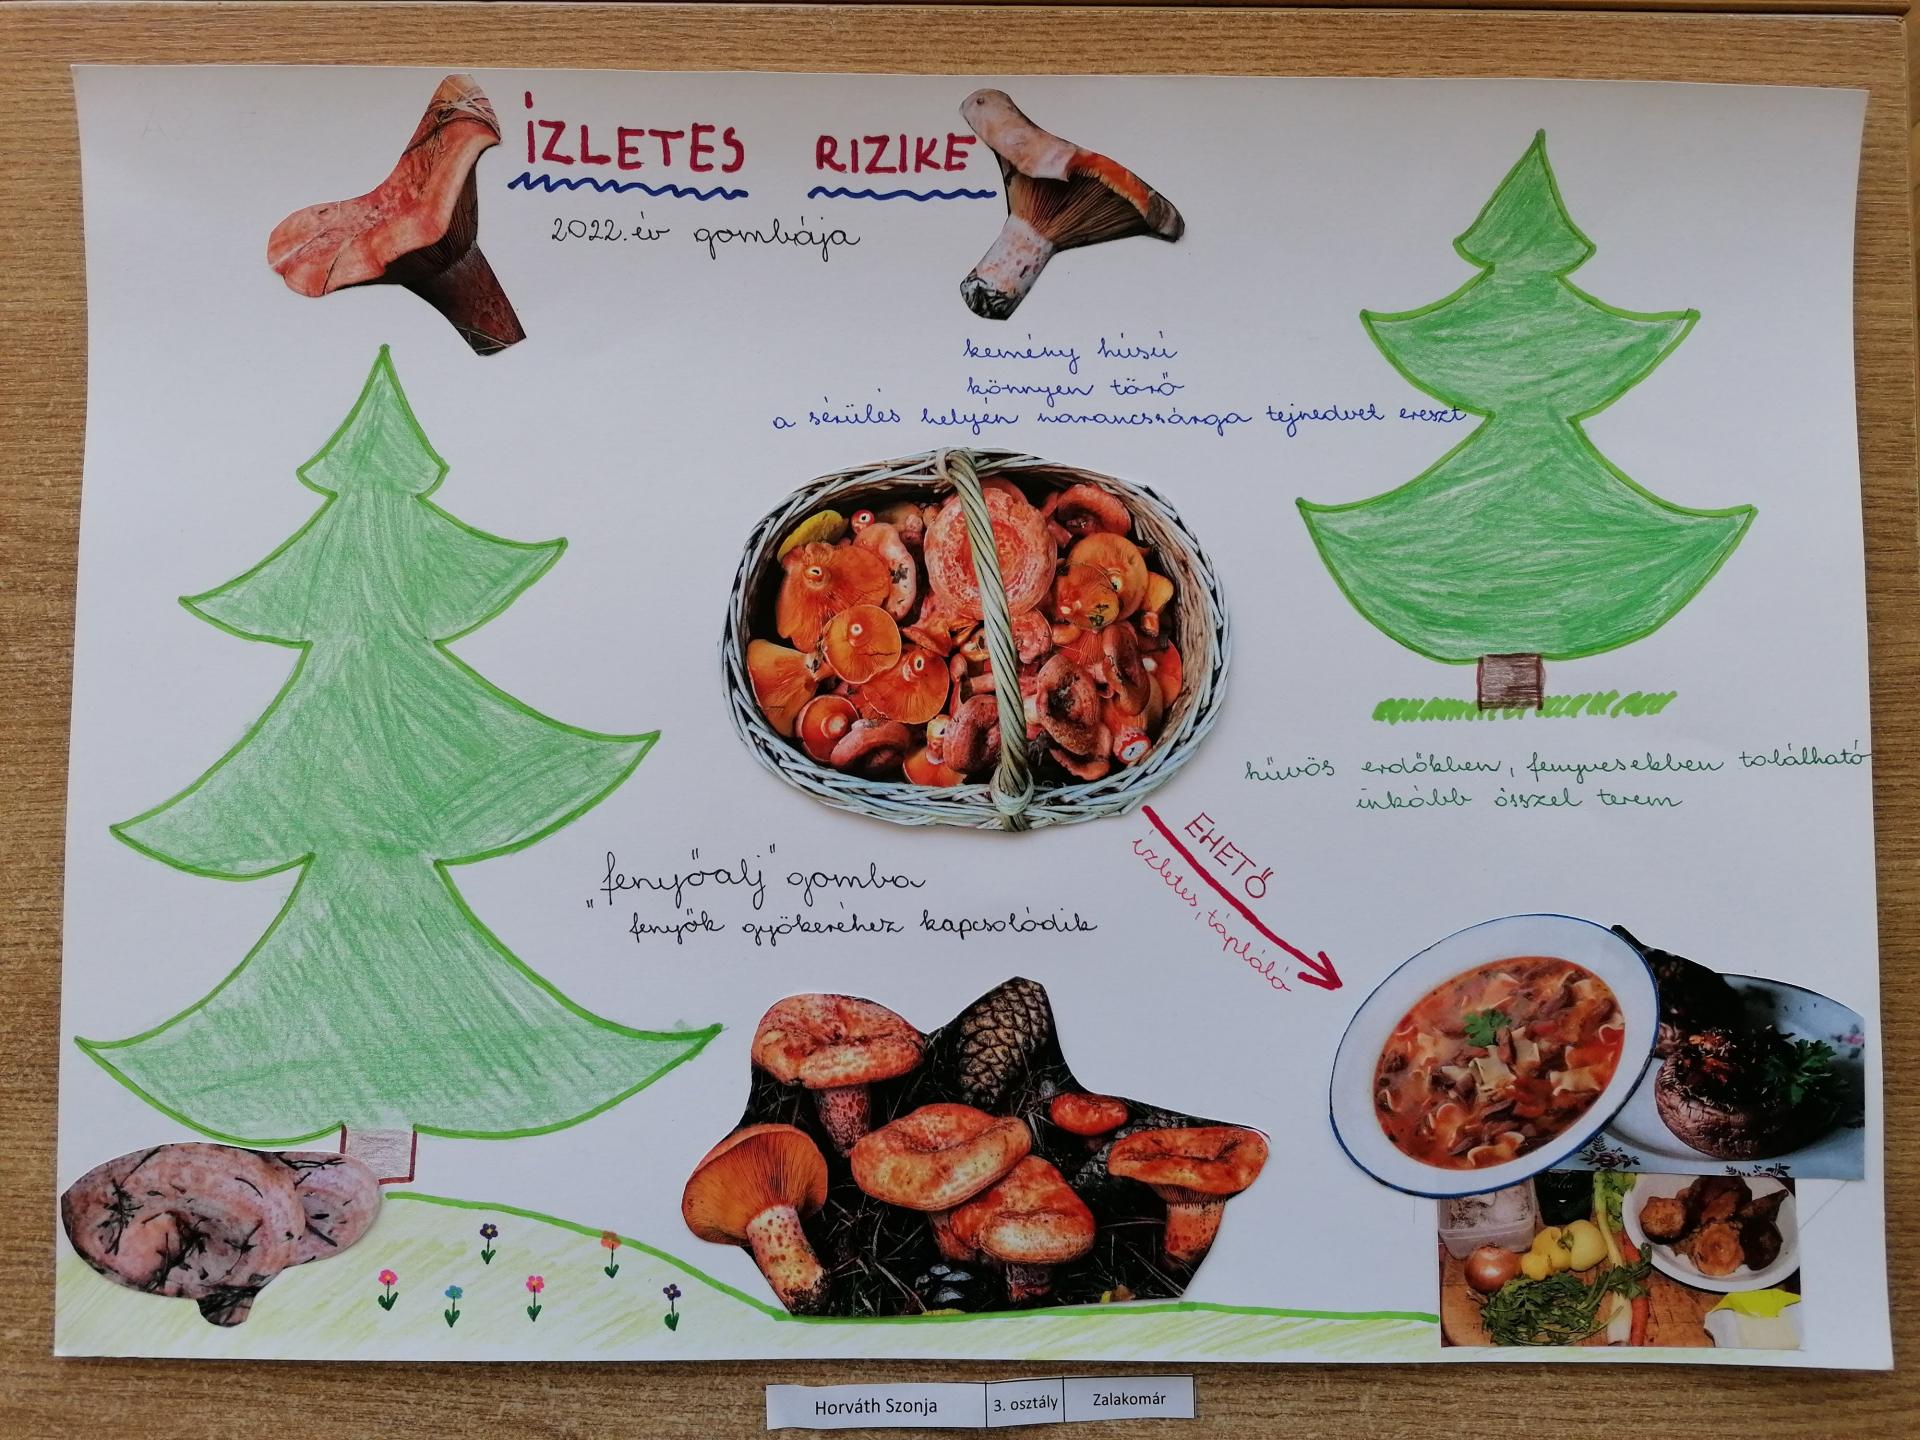 ÍZLETES RIZIKE
2022. év gombája
kemény húsú
könnyen törő
a sérülés helyén narancssárga tejnedvet ereszt
hűvös erdőkben, fenyvesekben található
inkább ősszel terem
EHETŐ
ízletes, tápláló
"fenyőalj" gomba
" fenyők gyökeréhez kapcsolódik
Horváth Szonja 3. osztály Zalakomár